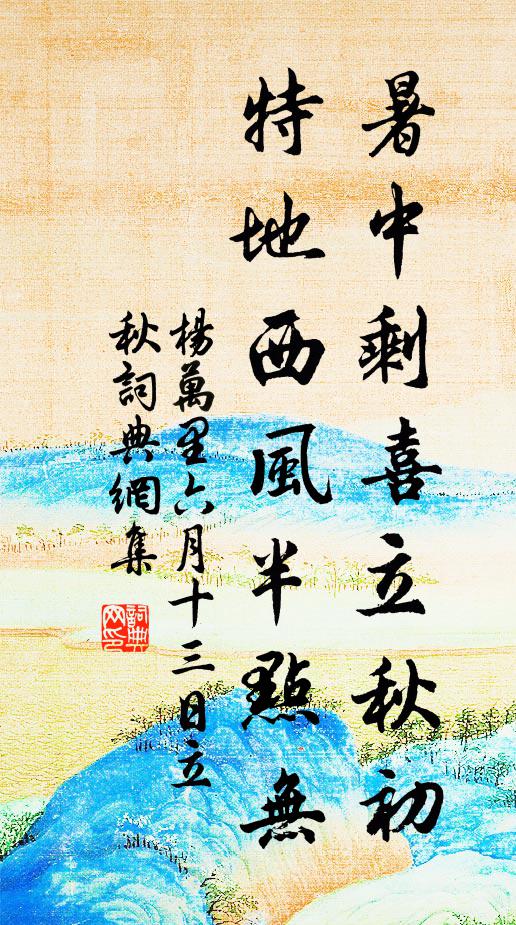 暑中剩喜立秋初
特地西風半點無
楊萬里六月十三日立
秋詞典網集
詞典
网印